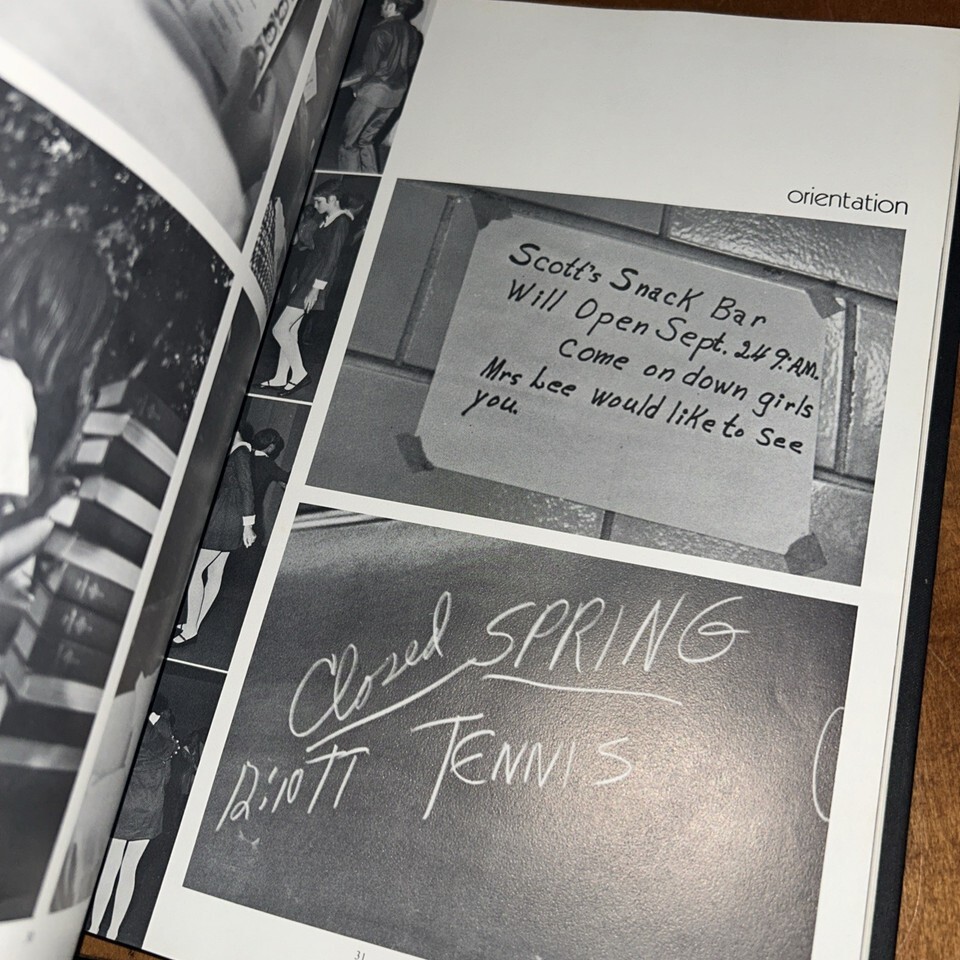 orientation
Scott's Snack Bar
Will Open Sept. 24 9:AM.
come on down girls
Mrs Lee would like to see
you.
Closed SPRING
TENNIS
31